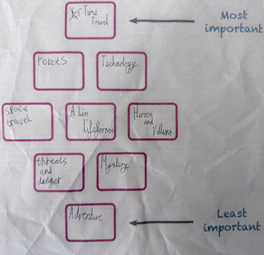 Time
Travel
Most
important
robots
Technology
space
travel
Alien
lifeforms
Heroes
and
Villains
threats
and
danger
Mystery
Adventure
Least
important